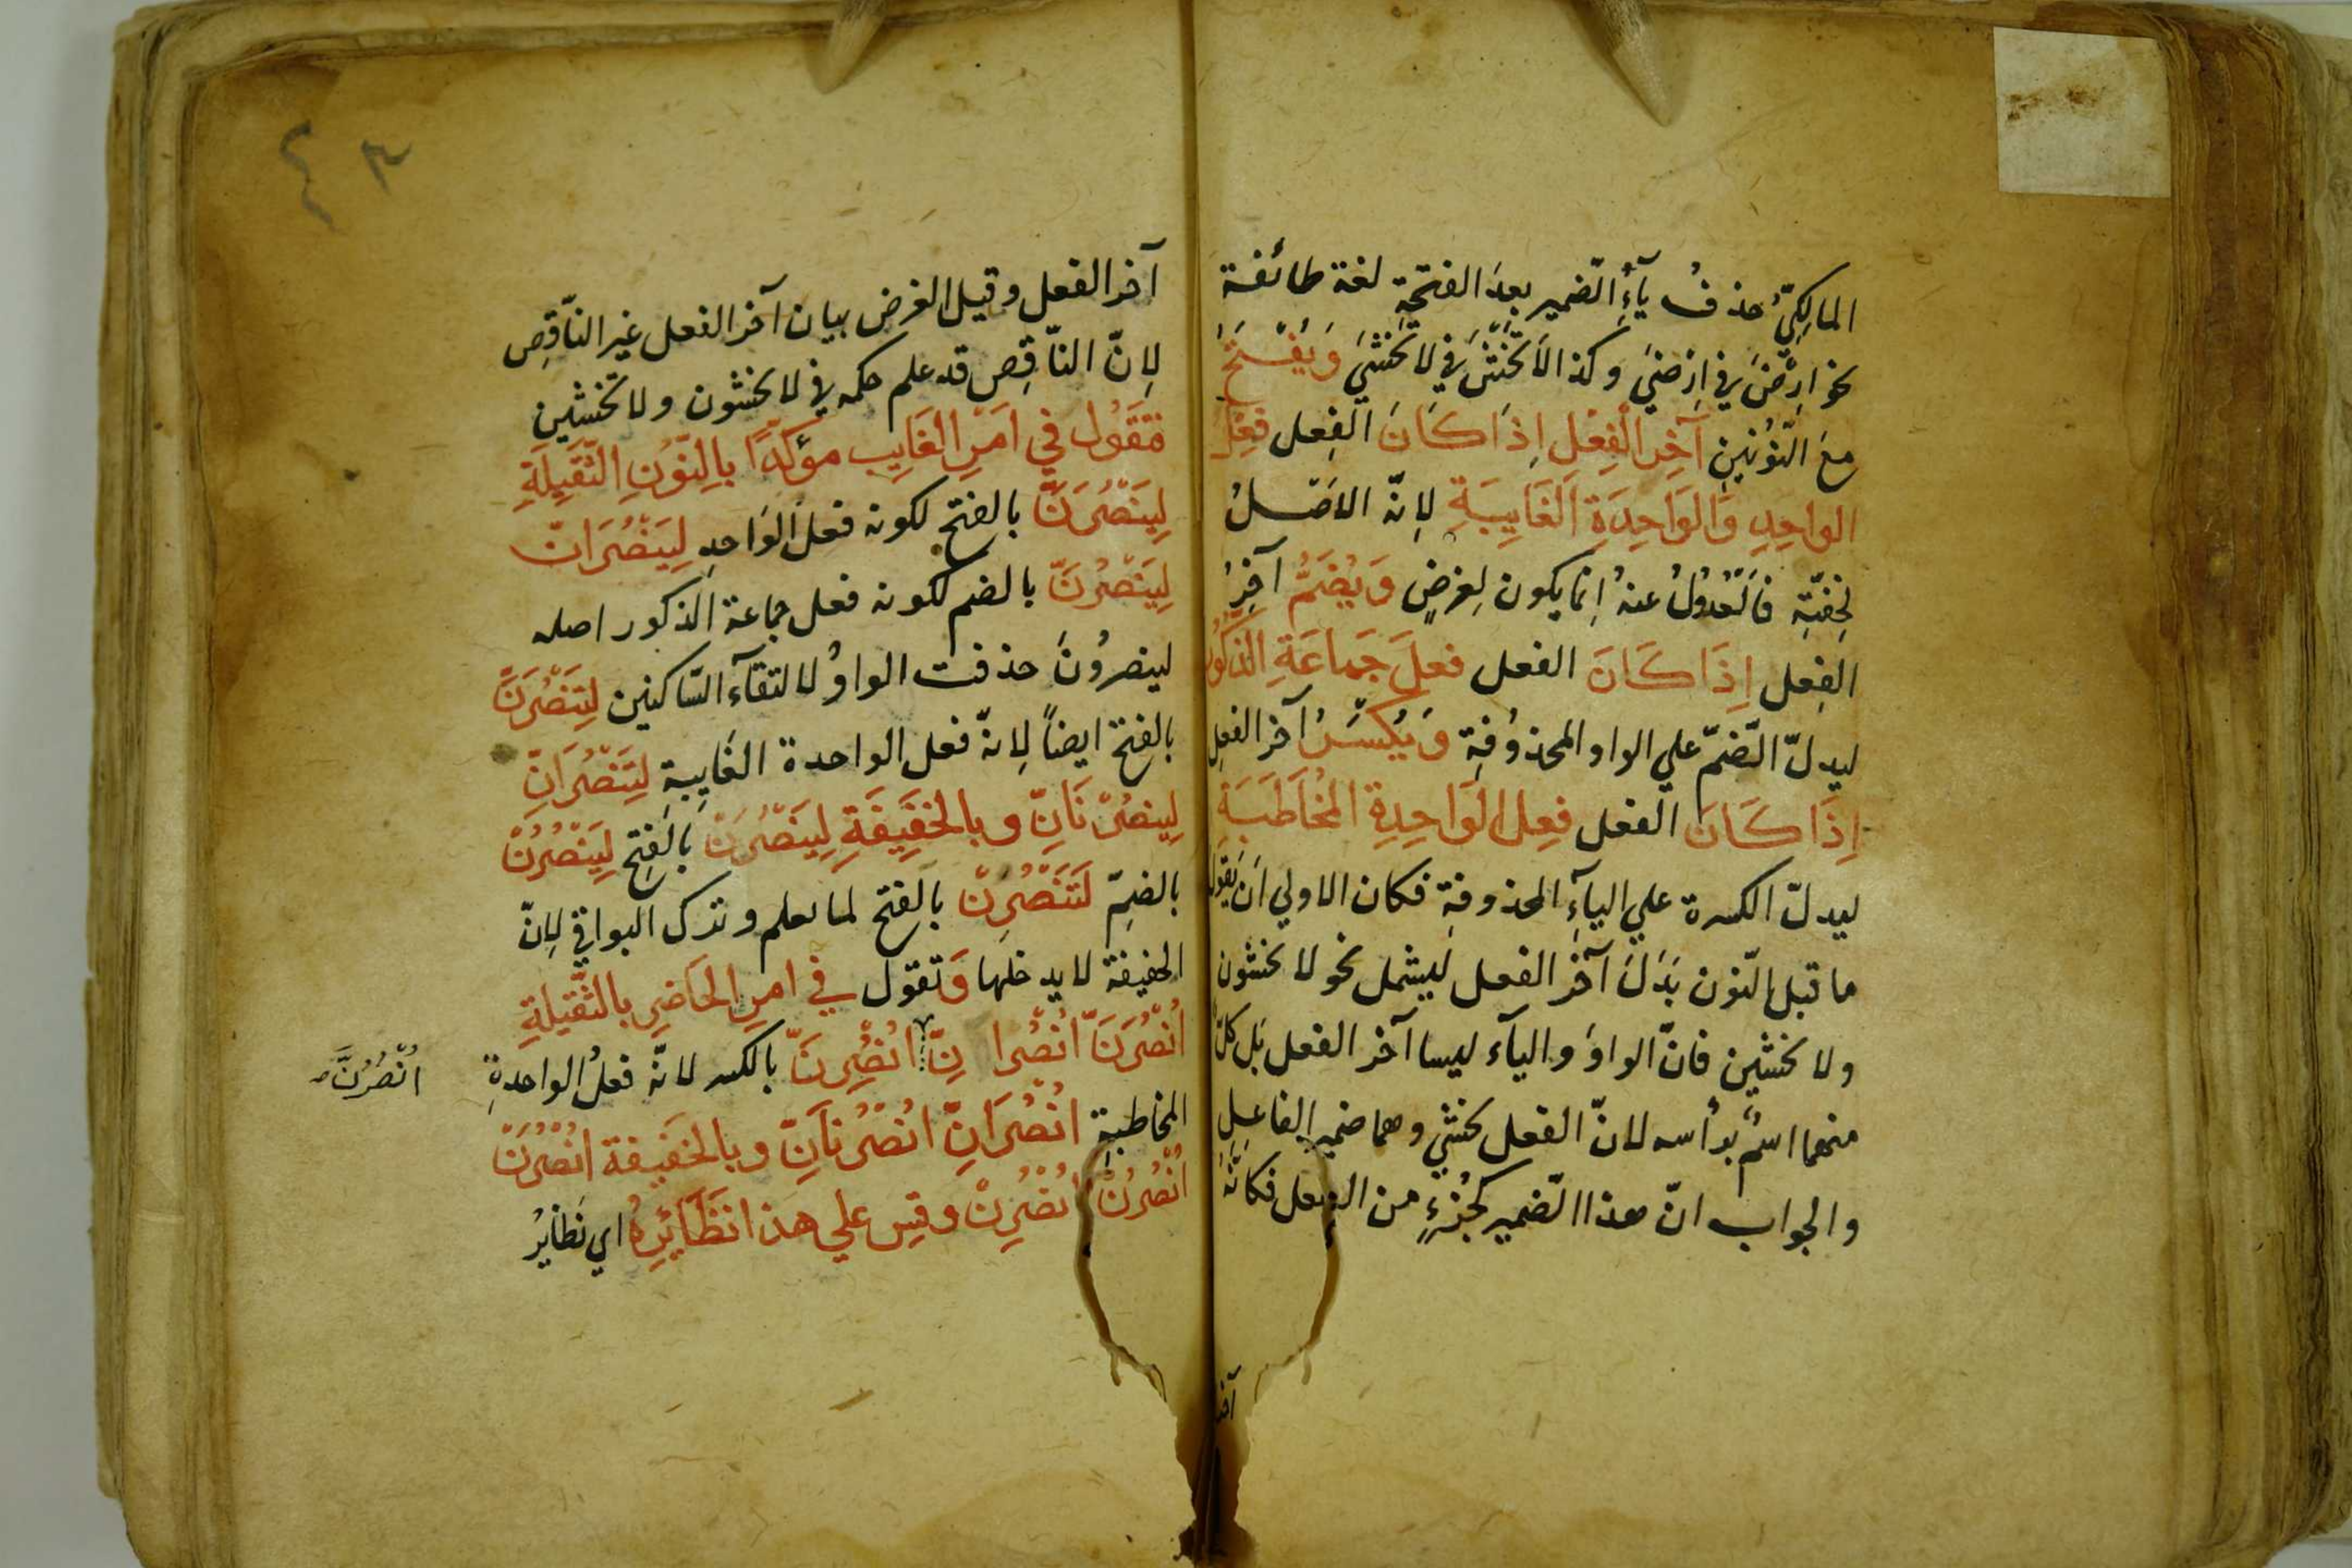 المالِكيّ حذفُ يآءِ الضّمير بعدَ الفتحةِ لغة طائفة
نحو ارضَنَّ في ارضَيِنَّ وكذا لا تخشَنَّ في لا تخشَيِنَّ وَيُفْتَحُ
مَعَ النُّونَينِ آخِرُ الْفِعْلِ إِذَا كَانَ الفِعل فِعْلَ
الواحِدِ وَالوَاحِدَةِ الغَايِبَةِ لِانّه الاصَلُ
لِخفّتِه فَالعُدُولُ عنهُ إنما يكون لِغرضٍ وَيُضَمُّ آخِرُ
الفِعل اِذَا كَانَ الفعل فعلَ جَمَاعَةِ الذكُورِ
ليدلّ الضّمّ علي الواو المحذوُفةِ وَيُكْسَرُ آخر الفعِلِ
اِذَا كَانَ الفعل فِعلَ الوَاحِدِةِ المُخَاطَبَةِ
ليدلّ الكسرة علي اليآءِ المحذوفةِ فكان الاولي ان يقول
ما قبل النّون بَدَلَ آخرِ الفعل ليشمل نحو لا تخشون
ولا تخشين فانّ الواوَ واليآء ليسا آخر الفعل بَل كلّ
منهما اسمٌ برأسه لانّ الفعل تخشي وهما ضمير الفاعِلِ
والجواب انّ هذا الضّمير كجُزءٍ من الفعل فكانّهُ
آخر
آخر الفعل وقيل الغرض بيان آخر الفعل غير النّاقِصِ
لِانّ النّاقِص قد علم حكمه في لا تخشون ولا تخشَين
فتَقَوُل في اَمْرِ الغَايِب مؤكدًا بالنّوُنِ الثّقَيِلَةِ
لِيَنْصُرَنَّ بالفتح لكونه فعل الواحدِ لِيَنْصُرَانّ
لِيَنْصُرُنَّ بالضم لكونه فعل جماعة الذكور اصله
لينصرُونَ حذفت الواوُ لالتقآء السّاكنين لِتَنْصُرَنَّ
بالفتح ايضاً لِانهّ فعل الواحدة الغَايِبةِ لِتَنْصُرَانِّ
لِينصُرْنَانِّ وبالخفَيِفَةِ لِيَنْصُرَنْ بالفتح لِيَنْصُرُنْ
بالضمِّ لَتَنْصُرَنْ بالفتح لما يعلم وترك البواقي لِانّ
الخفيفة لا يدخلها وَتقوَل في امرِ الحَاضِرِ بالثّقيلةِ
اُنْصُرَنَّ انْصُرانِّ اُنْصُرِنَّ بالكسر لانّه فعلُ الواحدةِ
انْصُرُنَّ صح
المخاطبةِ انْصُرَانِّ انْصُرْنَانِّ وبالخَفَيِفة انْصُرَنْ
اُنْصُرُنْ انْصُرِنْ وقِس علي هذا نظَائِرهُ اي نَظايرُ